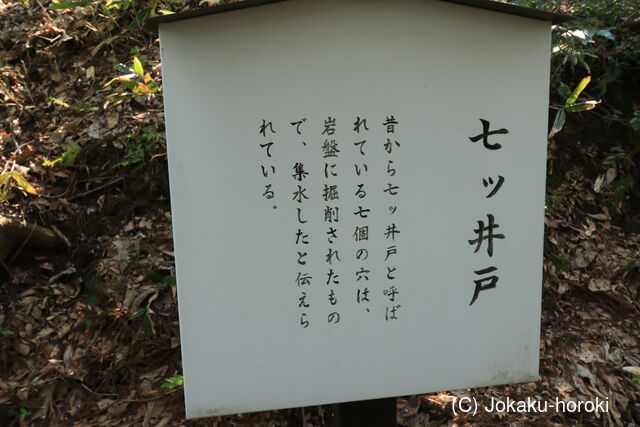 七ッ井戸
昔から七ッ井戸と呼ば
れている七個の穴は、
岩盤に掘削されたもの
で、集水したと伝えら
れている。
(C) Jokaku-horoki